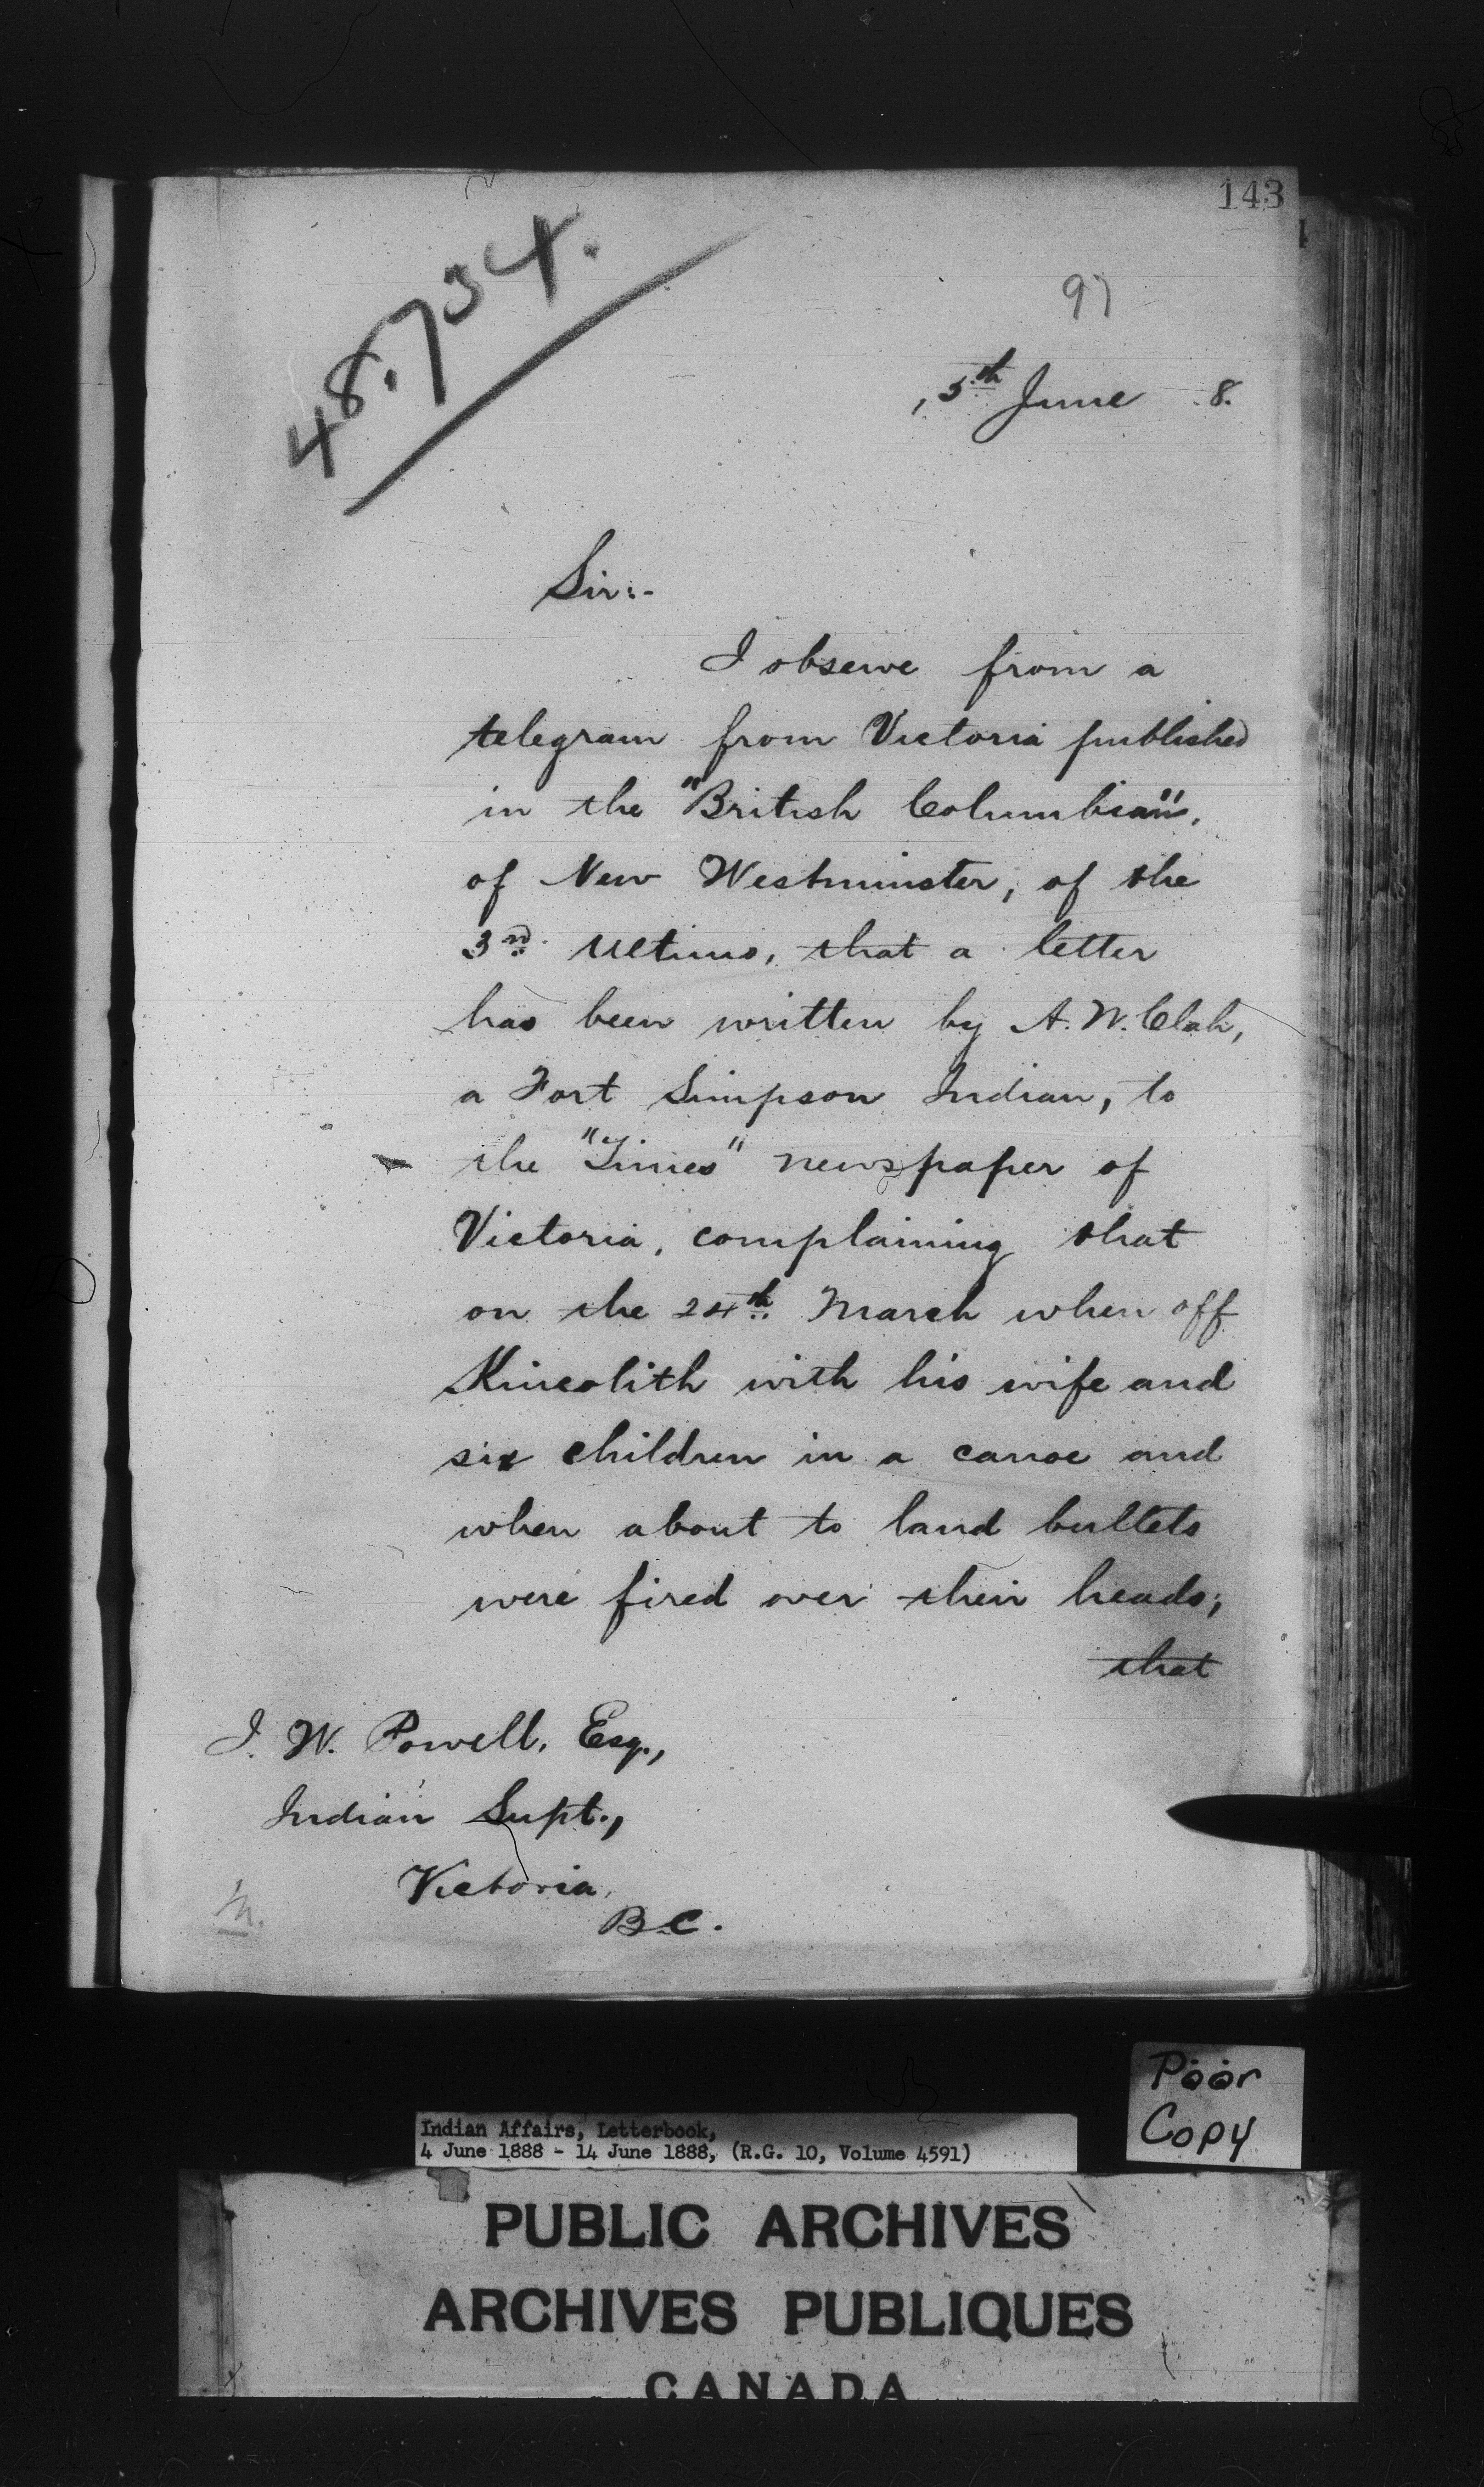 143
48.734.
97
, 5th June 8.
Sir:-
I observe from a
telegram from Victoria published
in the "British Columbian".
of New Westminster, of the
3rd Ultimo, that a letter
has been written by A. W. Clah,
a Fort Simpson Indian, to
the "Times" newspaper of
Victoria, complaining that
on the 24th March when off
Kincolith with his wife and
six children in a canoe and
when about to land bullets
were fired over their heads;
that
I. W. Powell, Esq.,
Indian Supt.,
Victoria,
B.C.
Poor
Copy
Indian Affairs, Letterbook,
4 June 1888 - 14 June 1888, (R.G. 10, Volume 4591)
PUBLIC ARCHIVES
ARCHIVES PUBLIQUES
CANADA